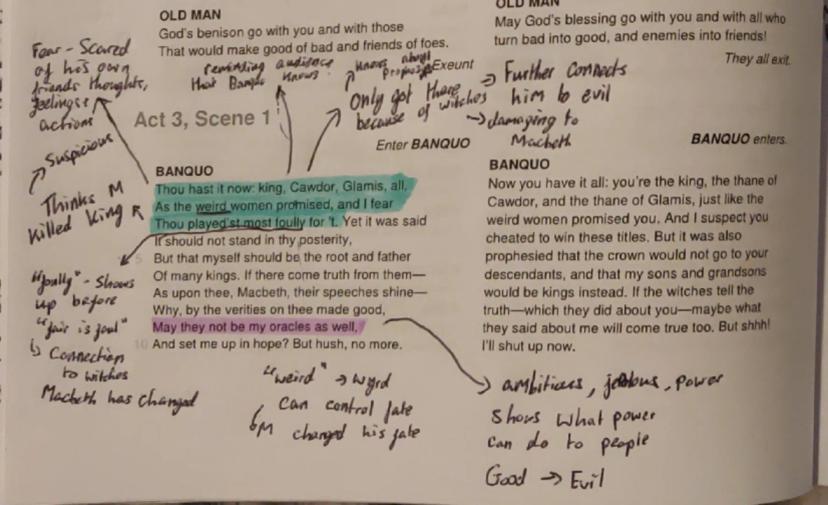 OLD MAN
God's benison go with you and with those
That would make good of bad and friends of foes.
Exeunt
OLD MAN
May God's blessing go with you and with all who
turn bad into good, and enemies into friends!
They all exit.
Fear - Scared
of his own
friends thoughts,
feelings &
actions
reminding audience
that Banquo knows.
knows about
Only got there
because of witches
Further connects
him to evil
damaging to
Macbeth
Act 3, Scene 1
Enter BANQUO
BANQUO enters.
Suspicious
Thinks M
killed King
BANQUO
Thou hast it now: king, Cawdor, Glamis, all,
As the weird women promised, and I fear
Thou played'st most foully for 't. Yet it was said
It should not stand in thy posterity,
5 But that myself should be the root and father
Of many kings. If there come truth from them—
As upon thee, Macbeth, their speeches shine—
Why, by the verities on thee made good,
May they not be my oracles as well,
10 And set me up in hope? But hush, no more.
BANQUO
Now you have it all: you're the king, the thane of
Cawdor, and the thane of Glamis, just like the
weird women promised you. And I suspect you
cheated to win these titles. But it was also
prophesied that the crown would not go to your
descendants, and that my sons and grandsons
would be kings instead. If the witches tell the
truth—which they did about you—maybe what
they said about me will come true too. But shhh!
I'll shut up now.
"foully" - Shows
up before
"fair is foul"
↳ Connection
to witches
Macbeth has changed
"weird" → wyrd
can control fate
M changed his fate
ambitious, jealous, power
Shows what power
can do to people
Good → Evil